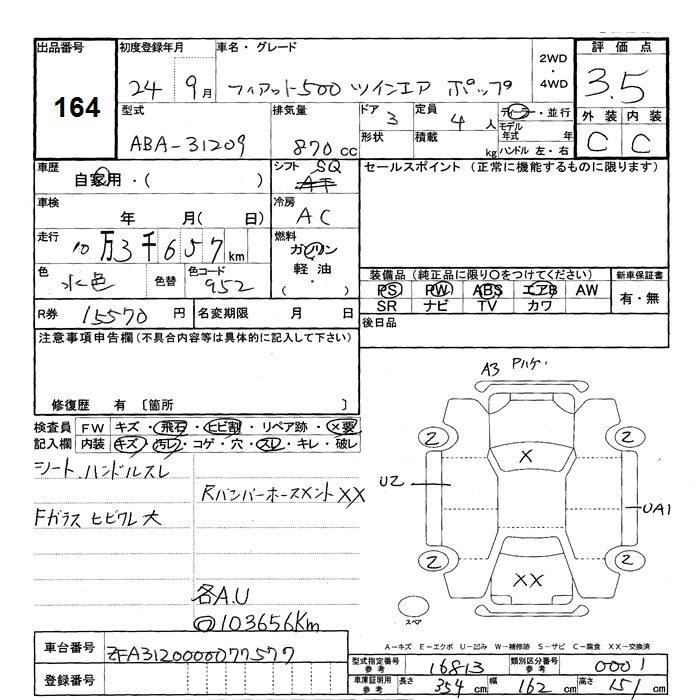 出品番号 初度登録年月 車名・グレード 2WD・4WD 評価点
164 24 9月 フィアット500 ツインエア ポップ 3.5
型式 排気量 ドア 定員 ディーラー・並行 外装 内装
ABA-31209 870cc 3 4人 モデル年式 年 C C
形状 積載 kg ハンドル 左・右
車歴 シフト SQ セールスポイント (正常に機能するものに限ります)
自家用・( ) AT
車検 冷房
年 月( 日) AC
走行 燃料
10万3千657km ガソリン
色 色替 色コード 軽油・
水色 952 ( ・ )
装備品 (純正品に限り○をつけてください) 新車保証書
PS PW ABS エアB AW 有・無
SR ナビ TV カワ
R券 15570円 名変期限 月 日 後日品
注意事項申告欄(不具合内容等は具体的に記入して下さい)
修復歴 有 〔箇所 〕
検査員 FW キズ・飛石・ヒビ割・リペア跡・×要
記入欄 内装 キズ・汚レ・コゲ・穴・スレ・キレ・破レ
シート、ハンドルスレ
Rバンパーホースメント XX
Fガラス ヒビワレ大
各A.U
◎103656Km
A3 アハゲ
2 2
X
U2 UA1
2 2
XX
スペア
A-キズ E-エクボ U-凹み W-補修跡 S-サビ C-腐食 XX-交換済
車台番号 ZFA3120000077577
登録番号
型式指定番号 参考 16813 類別区分番号 参考 0001
車庫証明用 参考 長さ 354 幅 162 高さ 151